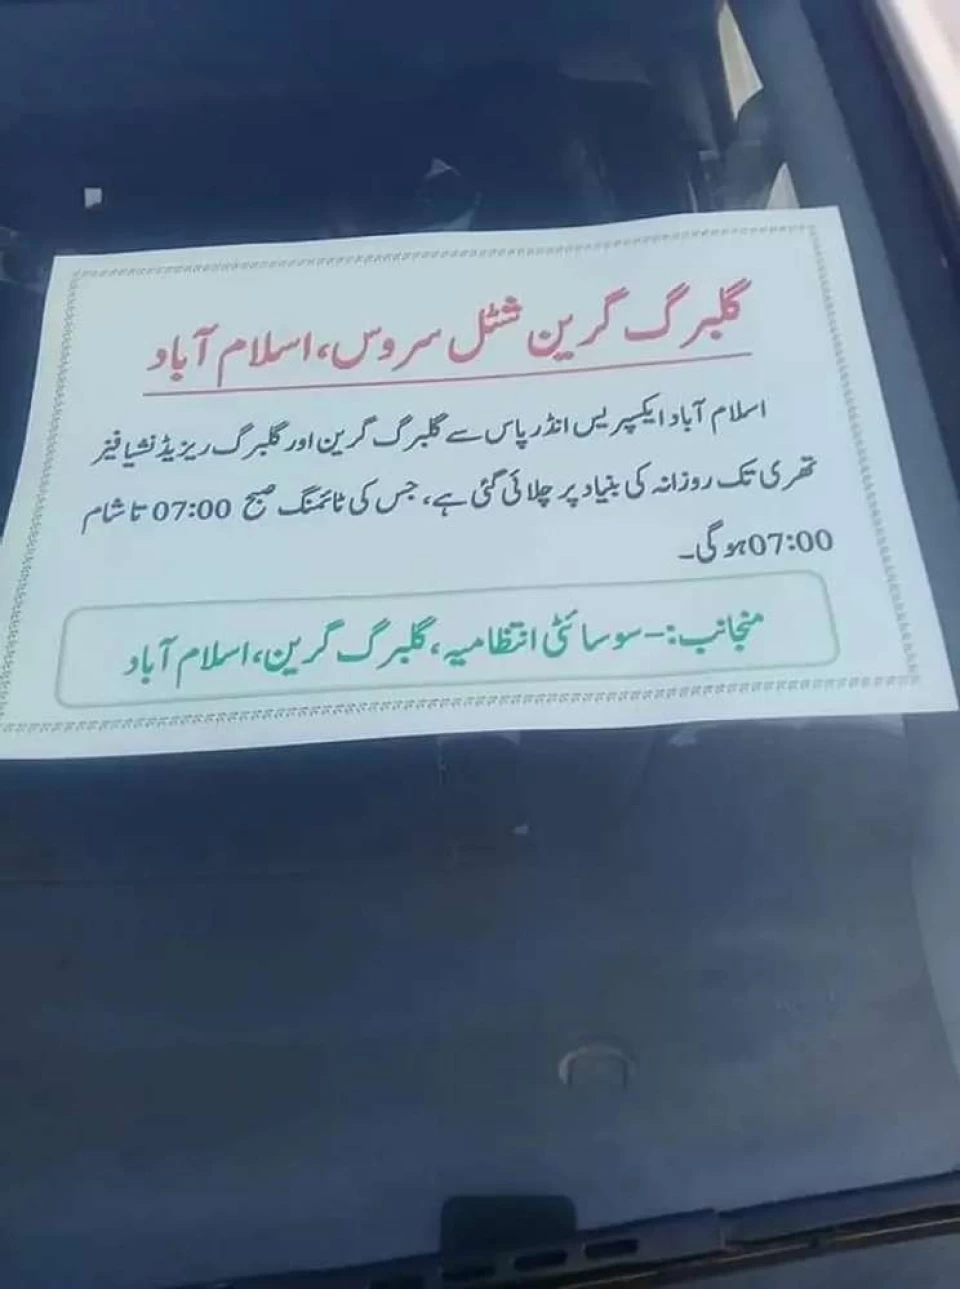 گلبرگ گرین شٹل سروس، اسلام آباد
اسلام آباد ایکسپریس انڈر پاس سے گلبرگ گرین اور گلبرگ ریزیڈنشیا فیز
تھری تک روزانہ کی بنیاد پر چلائی گئی ہے، جس کی ٹائمنگ صبح 07:00 تا شام
07:00 ہوگی۔
منجانب:- سوسائٹی انتظامیہ، گلبرگ گرین، اسلام آباد